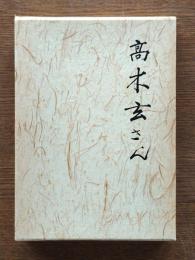 髙木玄さん